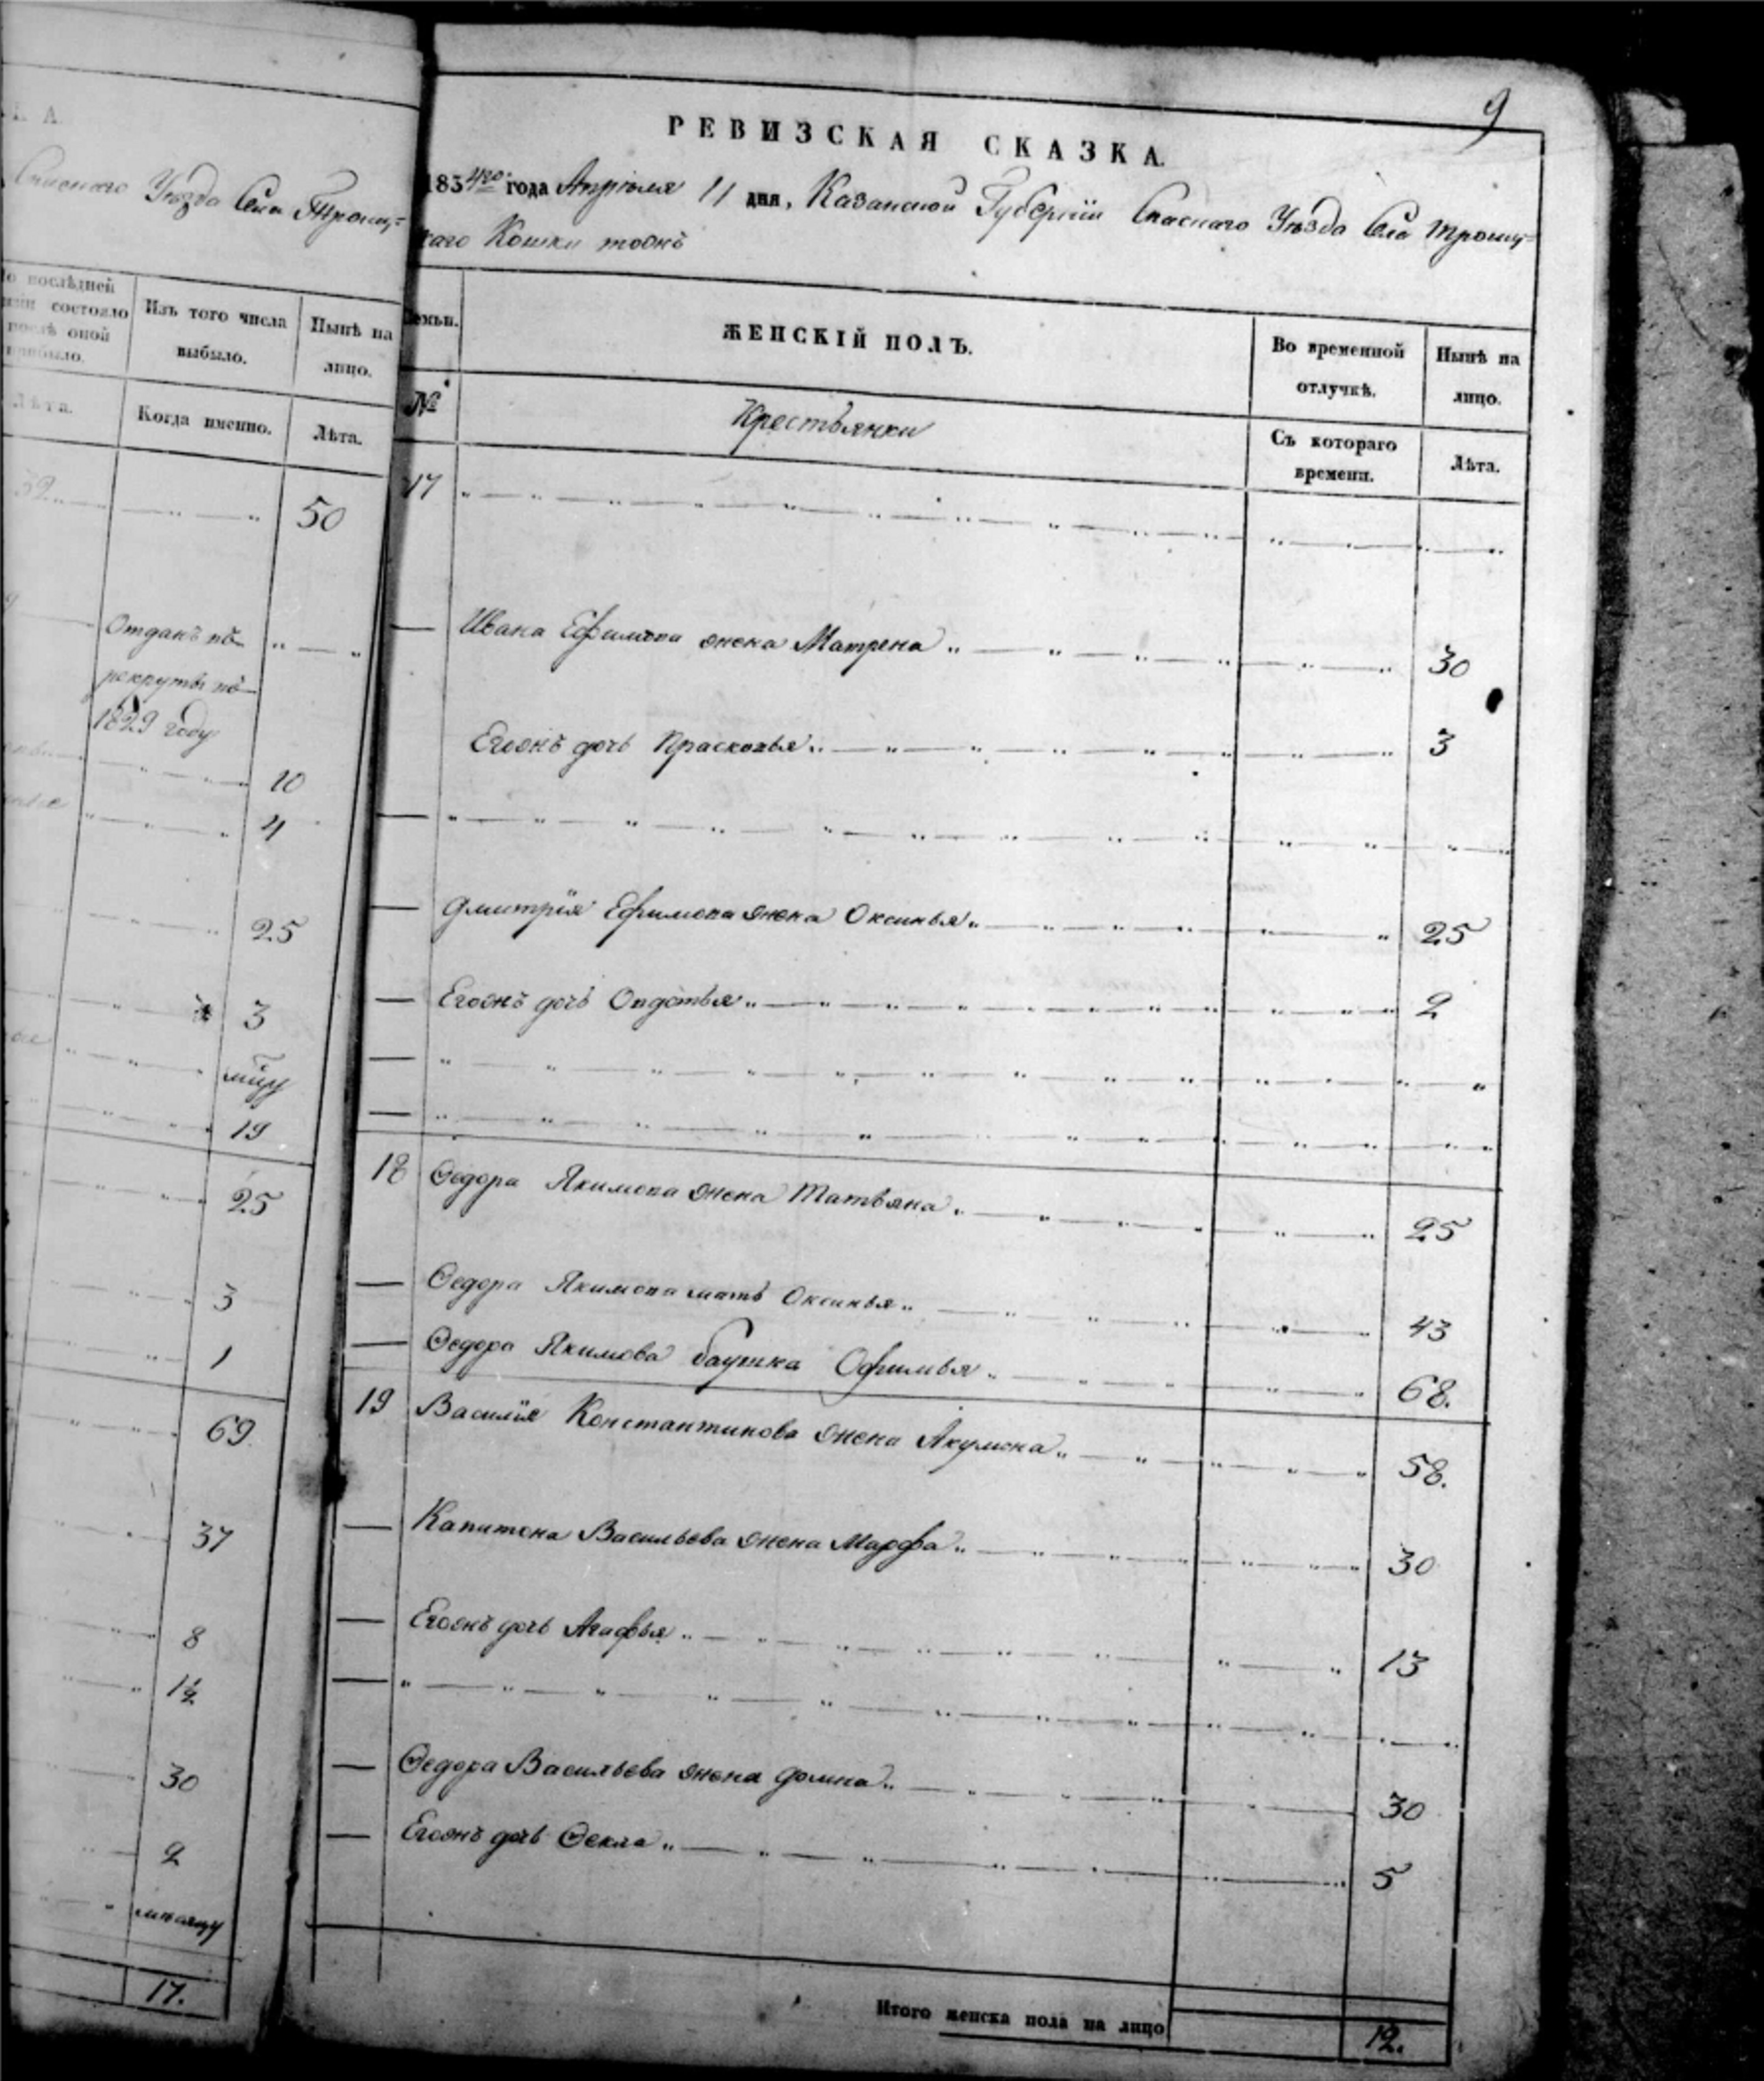 К А.
Спаснаго Уѣзда Села Трошу=
По послѣдней
состояло
послѣ оной
прибыло.
Лѣта.
Изъ того числа
выбыло.
Когда именно.
Нынѣ на
лицо.
Лѣта.
50
Отданъ въ
рекруты въ
1829 году
10
4
25
3
мцу
19
25
3
1
69
37
8
1½
30
2
17.
9
РЕВИЗСКАЯ СКАЗКА.
1834го года Апрѣля 11 дня, Казанской Губерніи Спаснаго Уѣзда Села Трошу=
скаго Кошки тожъ
Семьи.
ЖЕНСКІЙ ПОЛЪ.
Во временной
отлучкѣ.
Нынѣ на
лицо.
№
Крестьянки
Съ котораго
времени.
Лѣта.
17
Ивана Ефимова жена Матрена 30
Егожъ дочь Прасковья 3
Дмитрія Ефимова жена Оксинья 25
Егожъ дочь Овдотья 2
18 Ѳедора Якимова жена Татьяна 25
Ѳедора Якимова мать Оксинья 43
Ѳедора Якимова баушка Офимья 68.
19 Василія Константинова жена Акулина 58.
Капитона Васильева жена Марфа 30
Егожъ дочь Агафья 13
Ѳедора Васильева жена Домна 30
Егожъ дочь Ѳекла 5
Итого женска пола на лицо 12.